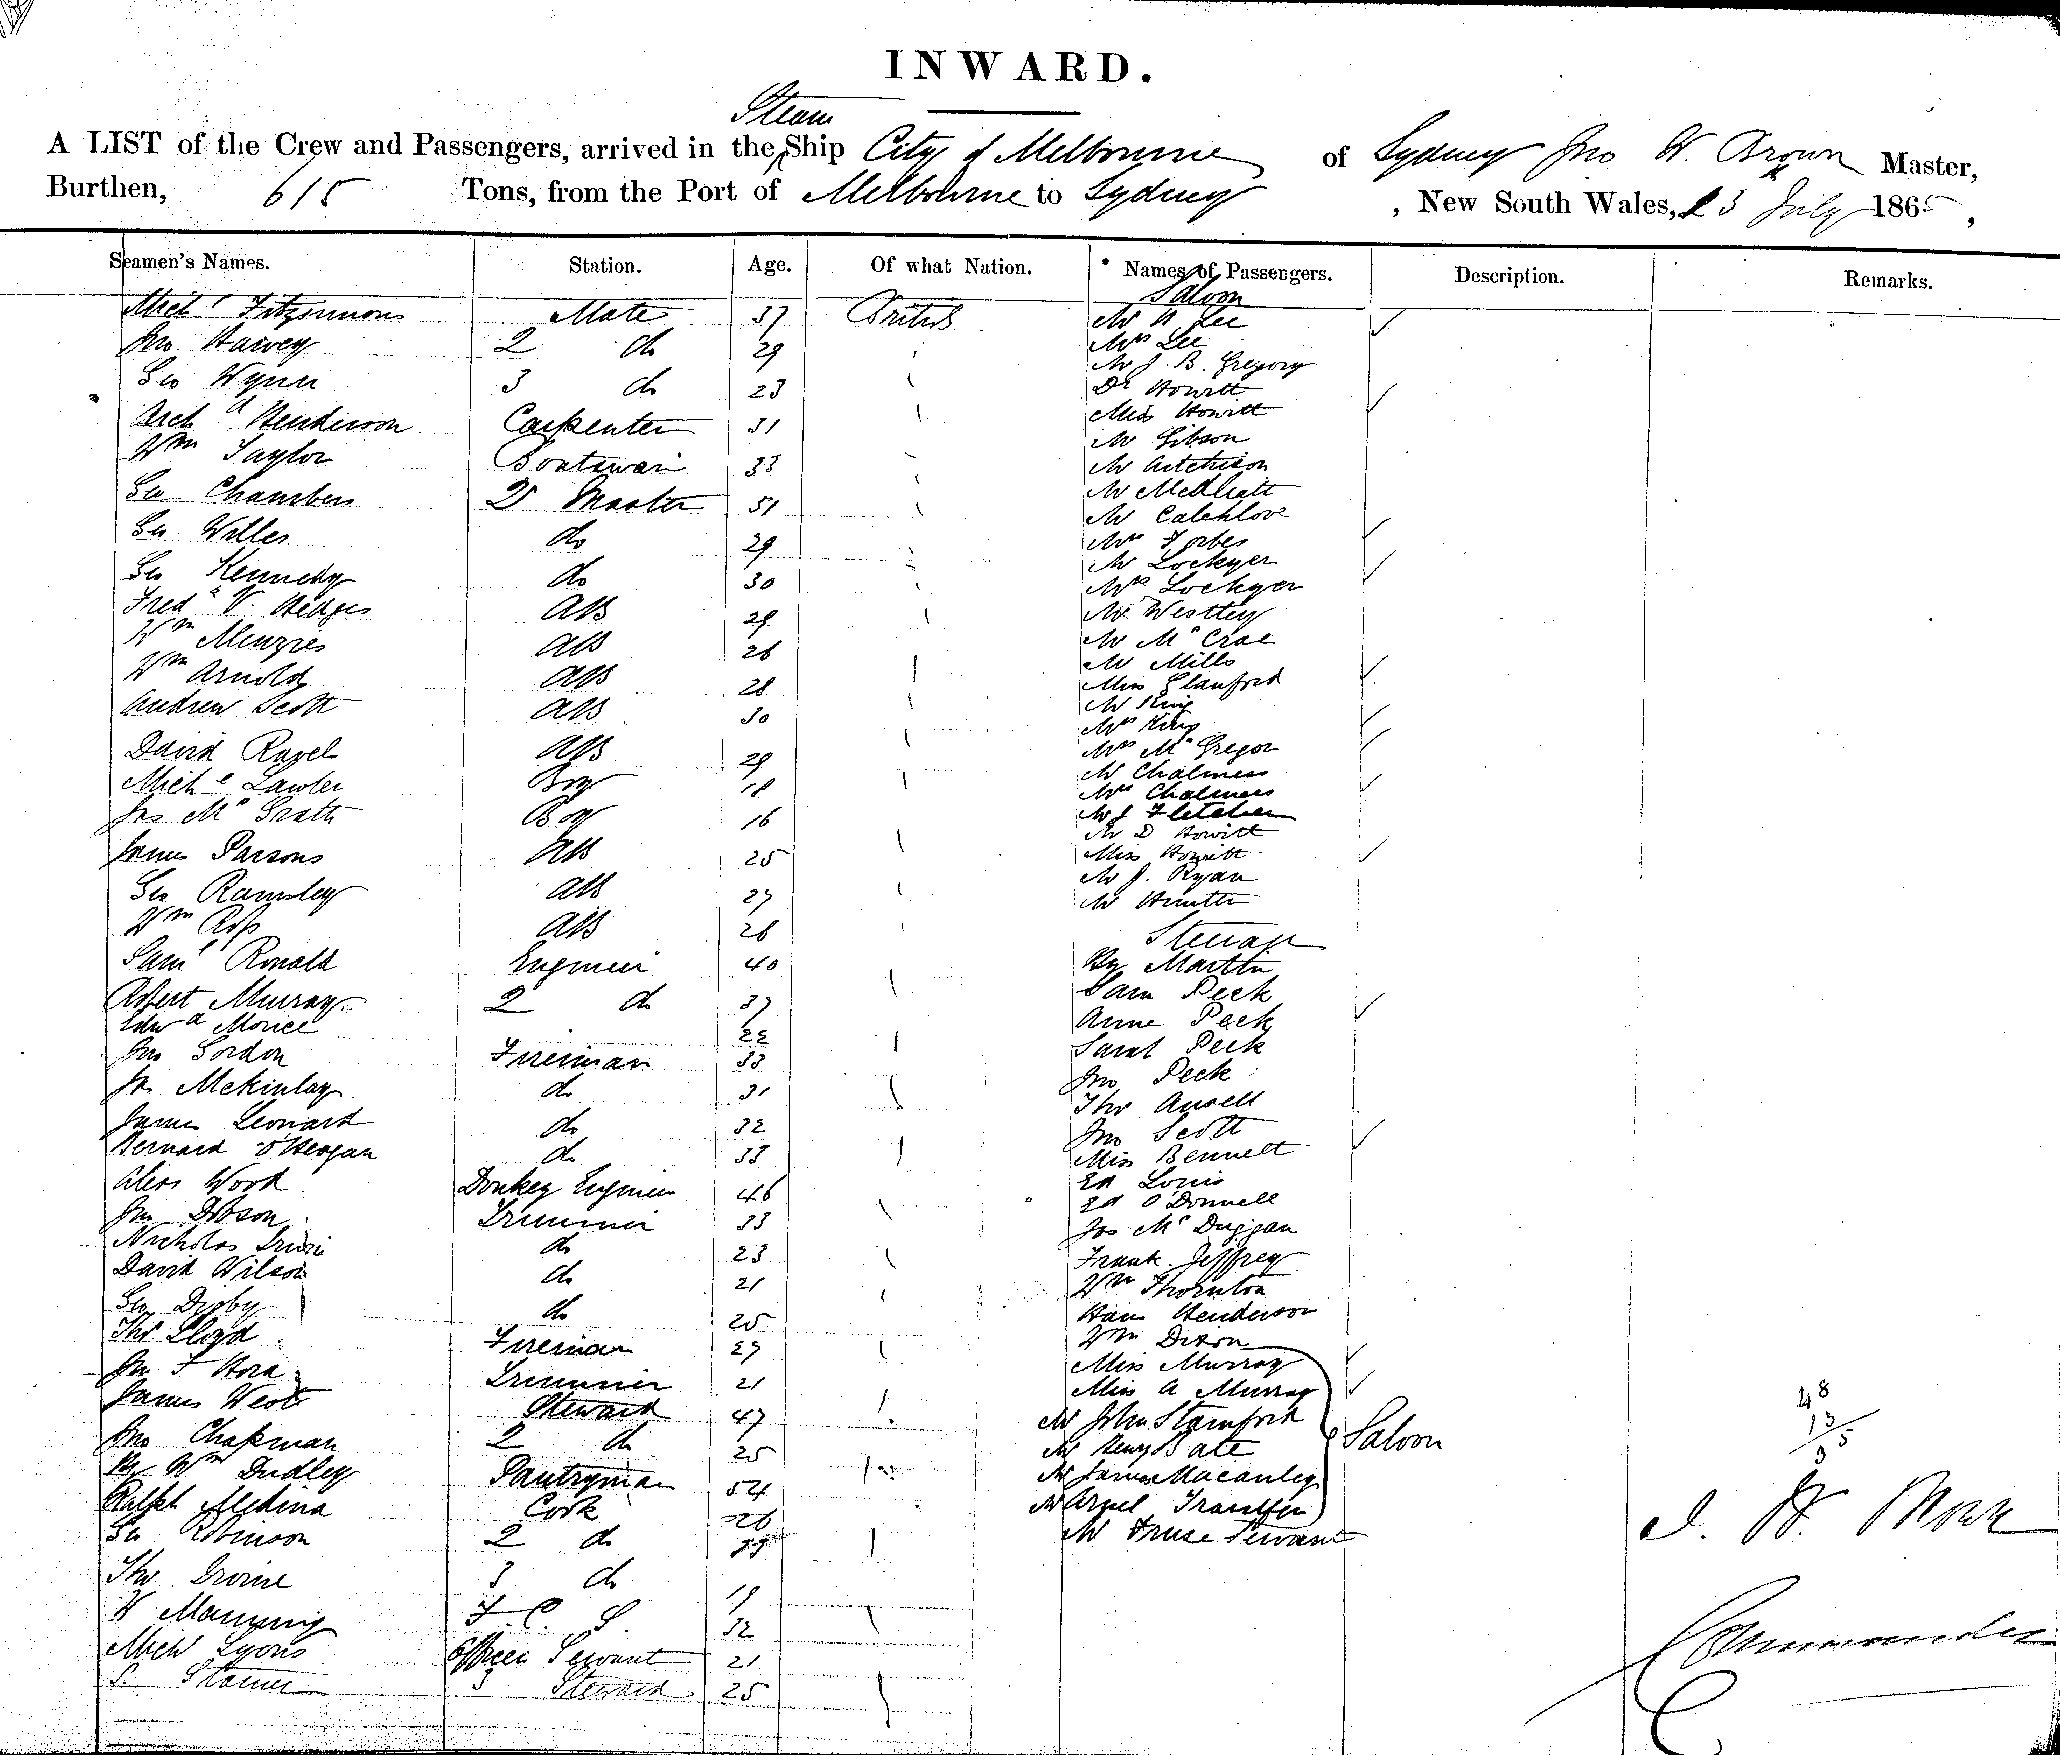 INWARD.
Steam
A LIST of the Crew and Passengers, arrived in the Ship City of Melbourne of Sydney Jno W. Brown Master,
Burthen, 615 Tons, from the Port of Melbourne to Sydney, New South Wales, 23 July 1865,
Seamen's Names. Station. Age. Of what Nation. Names of Passengers. Description. Remarks.
Mich l Fitzsimmons Mate 37 British
Jno Harvey 2 do 29
Geo Wynn 3 do 23
Arch d Henderson Carpenter 31
Wm Taylor Boatswain 33
Geo Chambers Q Master 51
Geo Willes do 29
Geo Kennedy do 30
Fred k V. Hedges AB 29
Wm Menzies AB 26
Wm Arnold AB 28
Andrew Scott AB 30
David Razel AB 29
Mich l Lawler Boy 18
Jas Mc Grath Boy 16
James Parsons AB 25
Geo Ramsley AB 27
Wm Ross AB 26
Saml Ronald Engineer 40
Robert Murray 2 do 37
Edw d Morice 22
Jno Gordon Fireman 33
Jn McKinlay do 31
James Leonard do 32
Bernard O'Heogan do 33
Alexr Work Donkey Engineer 46
Jno Dobson Trimmer 33
Nicholas Irvin do 23
David Wilson do 21
Geo Digby do 25
Thos Lloyd Fireman 27
Jno F Horn Trimmer 21
James West Steward 47
Jno Chapman 2 do 25
Hy Wm Dudley Pantryman 54
Ralph Medina Cook 26
Geo Robinson 2 do
Thos Irvine 3 do 19
W Manning F. C. S 32
Mich Lyons Officer Servant 21
S. Stamer Steward 25
Saloon
Mr N Lee
Mrs Lee
Mr J. B. Gregory
Dr Howitt
Miss Howitt
Mr Gibson
Mr Aitchison
Mr Medlicott
Mr Catchlove
Mrs Forbes
Mr Lockyer
Mrs Lockyer
Mr Westley
Mr Mc Crae
Mr Mills
Miss Glanford
Mr King
Mrs King
Mrs Mc Gregor
Mr Chalmers
Mrs Chalmers
Mr J Fletcher
Mr D Howitt
Miss Howitt
Mr J. Ryan
Mr Hunter
Steerage
Hy Martin
Sam Peck
Anne Peck
Saml Peck
Jno Peck
Thos Ansell
Jno Scott
Miss Bennett
Ed Louis
Ed O'Donnell
Jos Mc Duggan
Frank Jeffrey
Wm Thornton
Han Henderson
Wm Dixon
Miss Murray
Miss A Murray
Mr John Stamford
Mr Henry Bate
Mr James Macauley
Mr
Mr Servant
Saloon
48
13
35
J. W. Brown
Commander